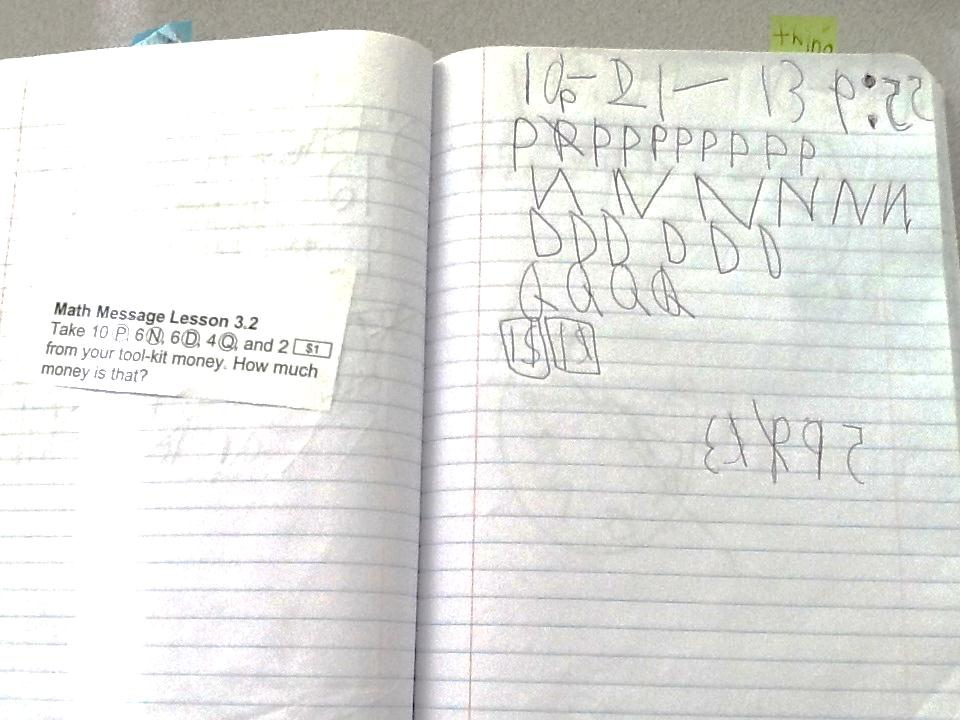 thing
Math Message Lesson 3.2
Take 10 P, 6 N, 6 D, 4 Q, and 2 $1
from your tool-kit money. How much
money is that?
10-21-13
P R P P P P P P P P
N N N N N N
D D D D D D
Q Q Q Q
1$ 1$